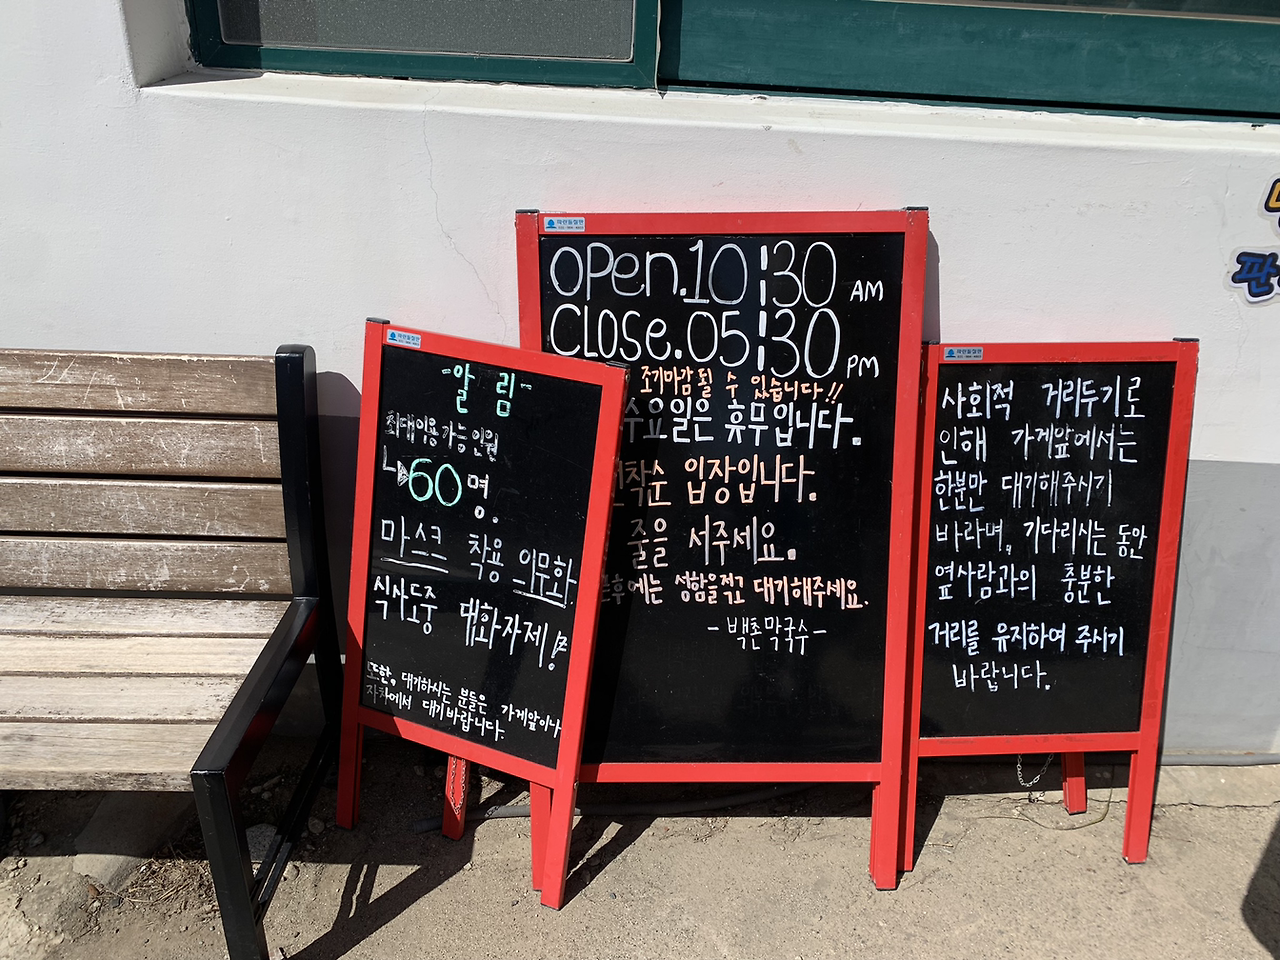 -알 림-
최대이용가능인원
60명.
마스크 착용 의무화
식사도중 대화자제!
또한, 대기하시는 분들은 가게앞이나
자차에서 대기바랍니다.
OPen.10:30 AM
CLOSe.05:30 PM
조기마감될 수 있습니다!!
수요일은 휴무입니다.
착순 입장입니다.
줄을 서주세요.
후에는 성함을적고 대기해주세요.
-백촌막국수-
사회적 거리두기로
인해 가게앞에서는
한분만 대기해주시기
바라며, 기다리시는 동안
옆사람과의 충분한
거리를 유지하여 주시기
바랍니다.
판